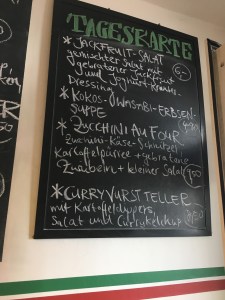 TAGESKARTE
* JACKFRUIT-SALAT
gemischter Salat mit
gebratener Jackfruit
und Joghurt-Kräuter-
Dressing
* KOKOS-WASABI-ERBSEN-
SUPPE
* ZUCCHINI AU FOUR
Zucchini-Käse-Schnitzel
Kartoffelpüree + gebratene
Zwiebeln + kleiner Salat
* CURRYWURSTTELLER
mit Kartoffeldippers,
Salat und Curryketchup